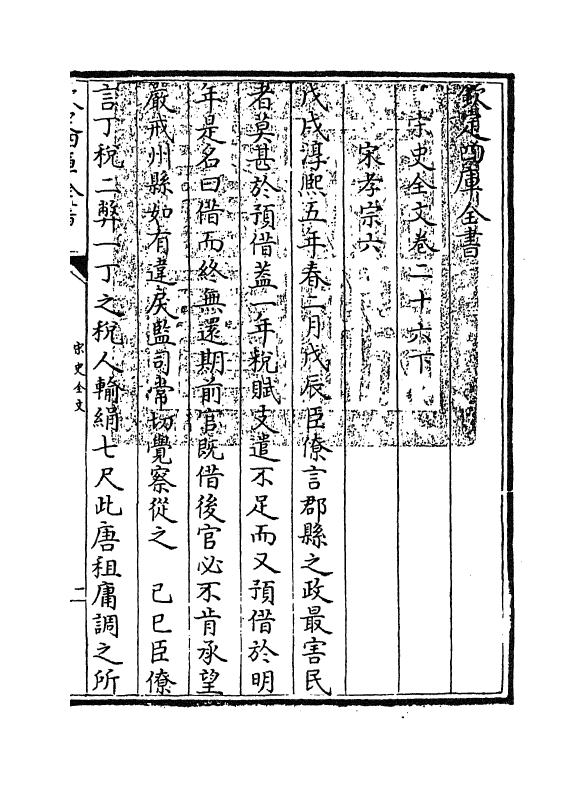 欽定四庫全書
宋史全文卷二十六下
宋孝宗六
戊戌淳熙五年春二月戊辰臣僚言郡縣之政最害民
者莫甚於預借蓋一年稅賦支遣不足而又預借於明
年是名曰借而終無還期前官既借後官必不肯承望
嚴戒州縣如有違戾監司常切覺察從之　己巳臣僚
言丁稅二弊一丁之稅人輸絹七尺此唐租庸調之所
宋史全文